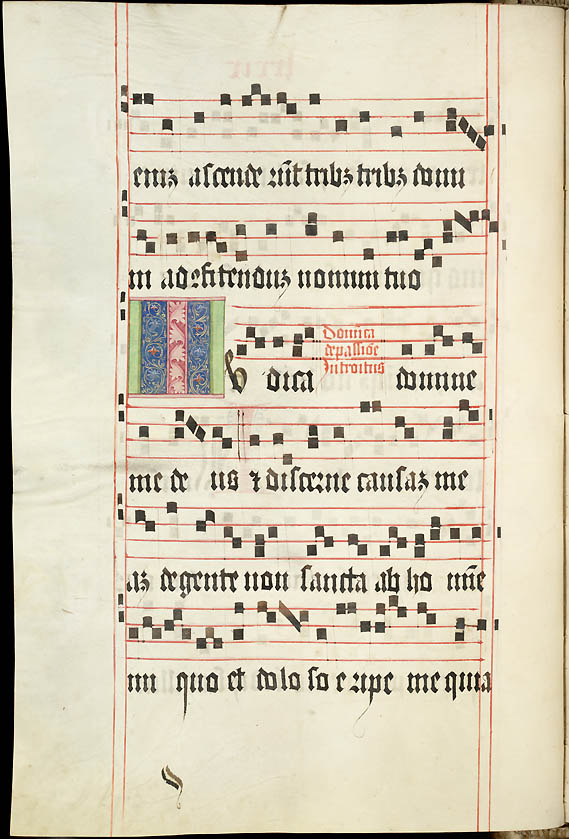 eniz ascende rūt tribz tribz domi
ni ad ꝯfitenduz nomini tuo
Domīca
de passiōe
Introitus
IUdica domine
me de us ⁊ discerne causaz me
az de gente non sancta ab ho mīe
ini quo et dolo so eripe me quia